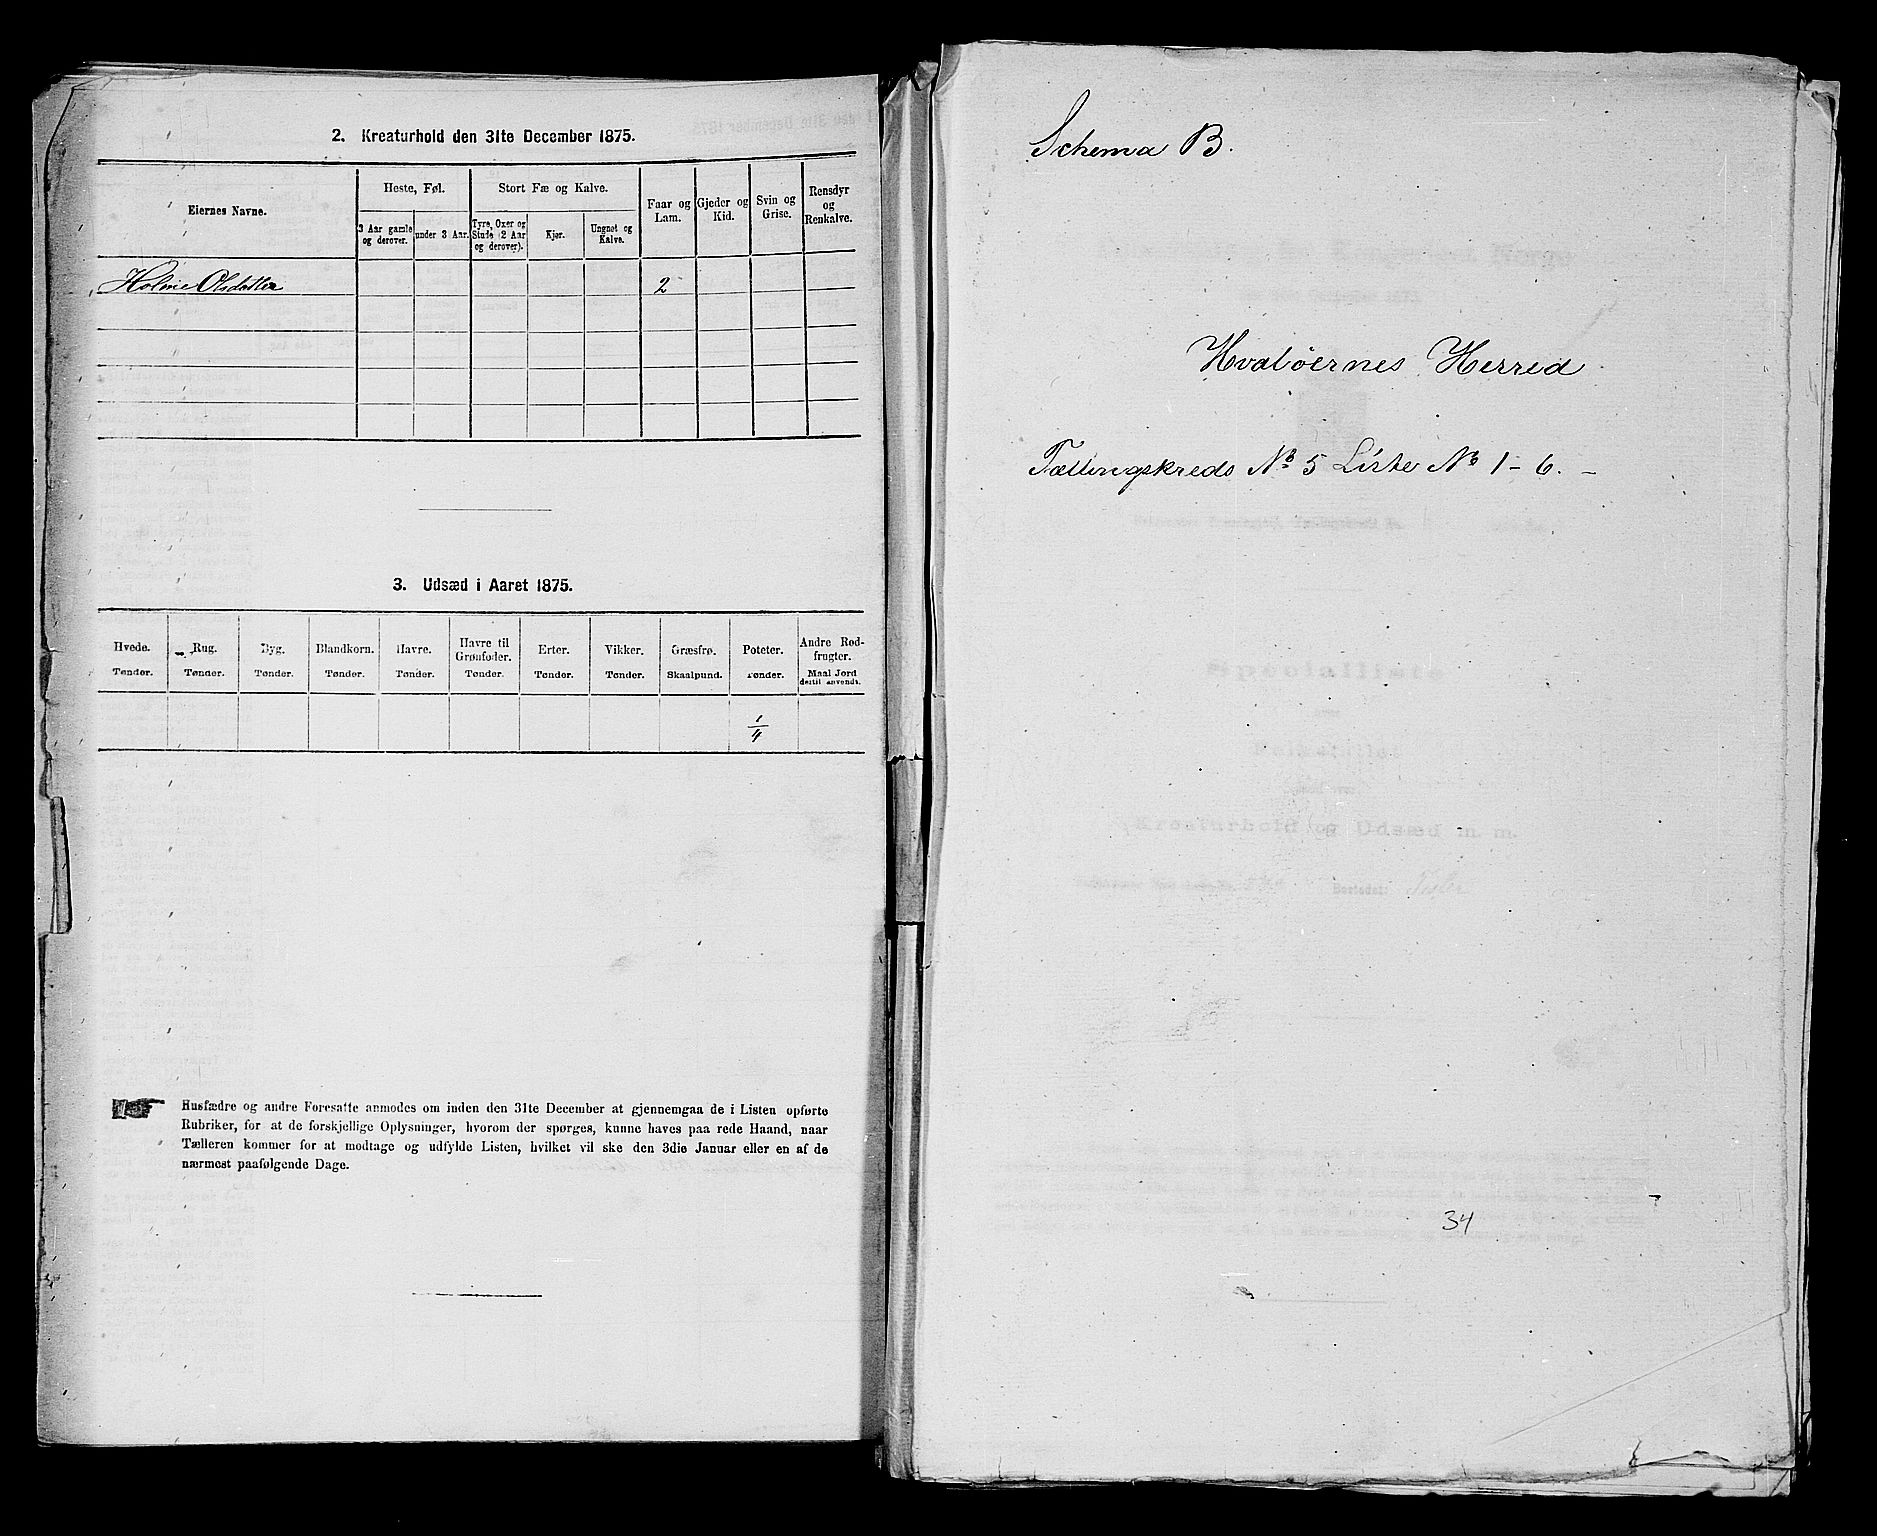 2. Kreaturhold den 31te December 1875.
Eiernes Navne.
Heste, Føl.
Stort Fæ og Kalve.
Faar og Lam.
Gjeder og Kid.
Svin og Grise.
Rensdyr og Renkalve.
3 Aar gamle og derover.
under 3 Aar.
Tyre, Oxer og Stude (2 Aar og derover).
Kjør.
Ungnøt og Kalve.
Olsdatter 2
3. Udsæd i Aaret 1875.
Hvede. Rug. Byg. Blandkorn. Havre. Havre til Grønfoder. Erter. Vikker. Græsfrø. Poteter. Andre Rodfrugter.
Tønder. Tønder. Tønder. Tønder. Tønder. Tønder. Tønder. Tønder. Skaalpund. Tønder. Maal Jord dertil anvendt.
1/4
Husfædre og andre Foresatte anmodes om inden den 31te December at gjennemgaa de i Listen opførte
Rubriker, for at de forskjellige Oplysninger, hvorom der spørges, kunne haves paa rede Haand, naar
Tælleren kommer for at modtage og udfylde Listen, hvilket vil ske den 3die Januar eller en af de
nærmest paafølgende Dage.
Schema B.
Hvaløernes Herred
Tællingskreds No 5 Liste No 1-6. -
34